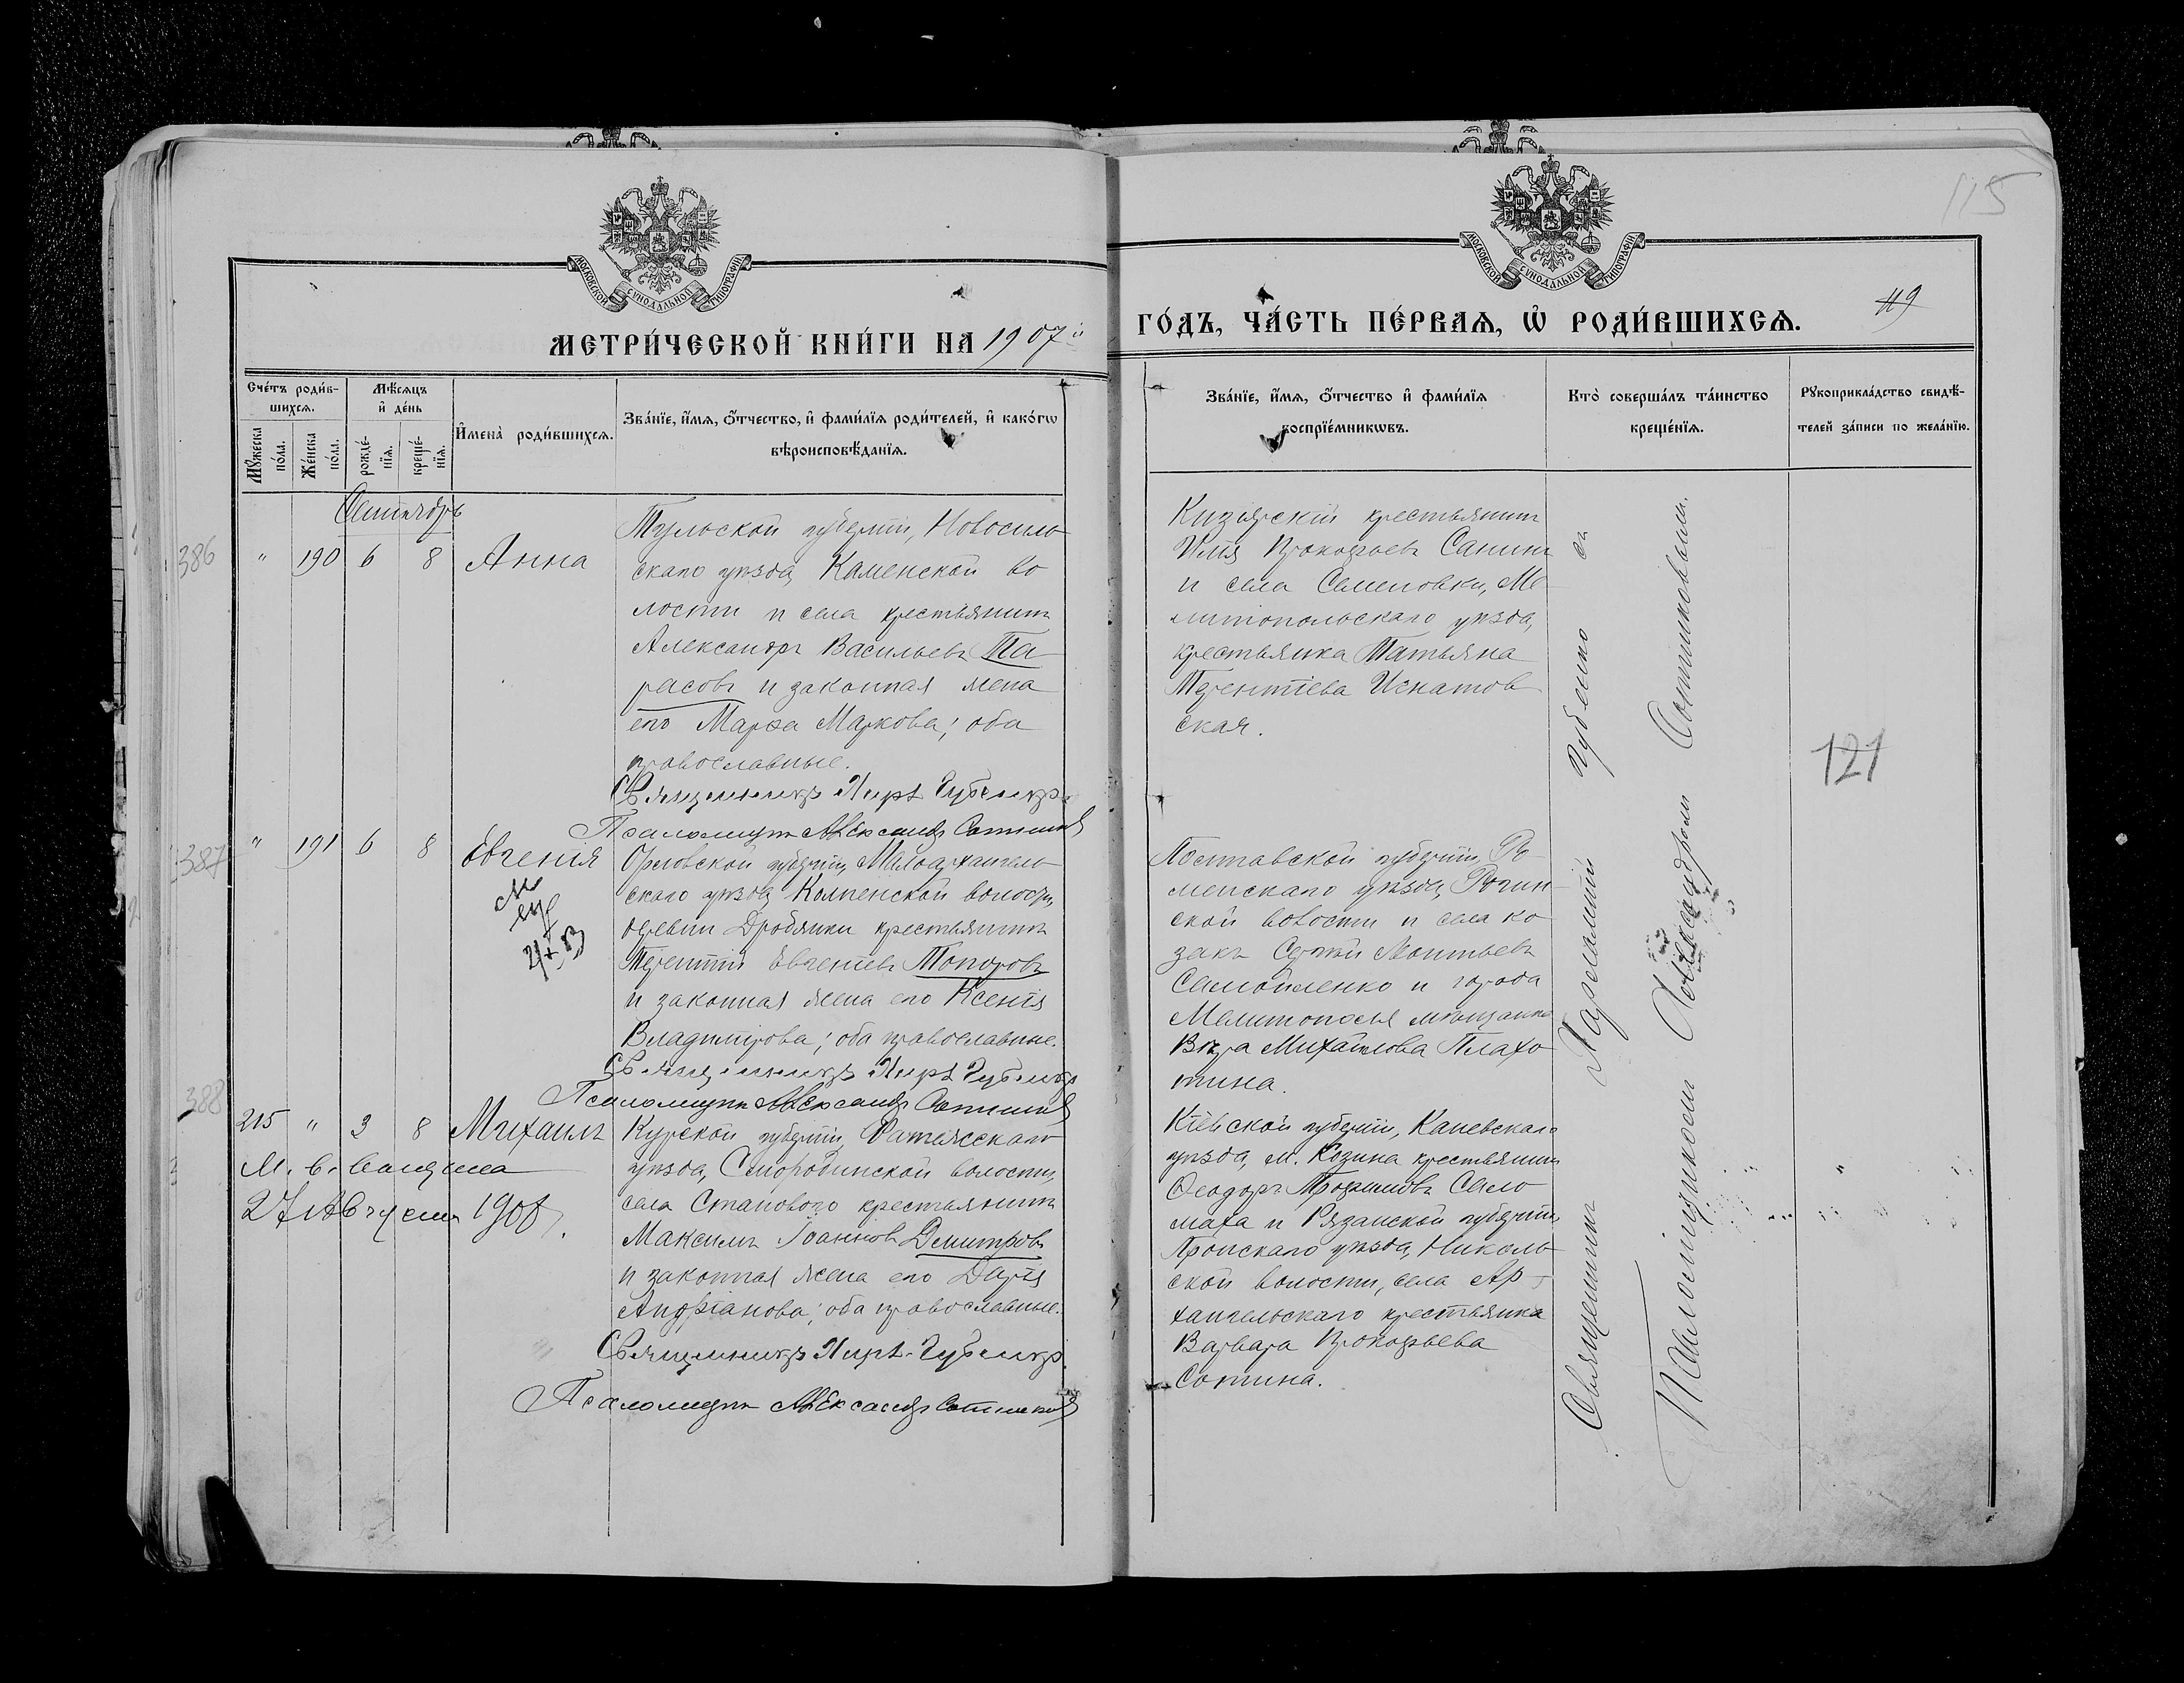 115
МОСКОВСКОЙ СУНОДАЛЬНОЙ ТИПОГРАФІИ
МОСКОВСКОЙ СУНОДАЛЬНОЙ ТИПОГРАФІИ
МЕТРИ́ЧЕСКОЙ КНИ́ГИ НА 1907й
ГО́ДЪ, ЧА́СТЬ ПЕ́РВАѦ, Ѡ҆ РОДИ́ВШИХСѦ.
49
Сче́тъ роди́в-
шихсѧ.
Мѣ́сѧцъ
и҆ де́нь
Мꙋ́жеска
по́ла.
Же́нска
по́ла.
рожде́-
нїѧ.
креще́-
нїѧ.
И҆мена̀ роди́вшихсѧ.
Зва́нїе, и҆́мѧ, ѻ҆́тчество, и҆ фами́лїѧ роди́телей, и҆ како́гѡ
вѣроисповѣ́данїѧ.
Зва́нїе, и҆́мѧ, ѻ҆́тчество и҆ фами́лїѧ
воспрїе́мникѡвъ.
Кто̀ соверша́лъ та́инство
креще́нїѧ.
Рꙋкоприкла́дство свидѣ́-
телей за́писи по жела́нїю.
Сентябрь
386
" 190 6 8 Анна
Тульской губерніи, Новосиль-
скаго уѣзда, Каменской во
лости и села крестьянинъ
Александръ Васильевъ Та-
расовъ и законная жена
его Марѳа Маркова; оба
православные.
Священникъ Харл. Губенко.
Псаломщикъ Александръ Сотников
Кизіярскій крестьянинъ
Илія Прокофьевъ Санинъ
и села Семеновки, Ме-
литопольскаго уѣзда,
крестьянка Татьяна
Терентіева Игнатов-
ская.
387
" 191 6 8 Евгенія
Орловской губерніи, Малоархангель-
скаго уѣзда, Колпенской волости,
деревни Дробяжки крестьянинъ
Терентій Евгеніевъ Топоровъ
и законная жена его Ксенія
Владимірова; оба православные.
Священникъ Харл. Губенко
Псаломщикъ Александръ Сотников
Полтавской губерніи, Ро-
менскаго уѣзда, Рогин-
ской волости и села ко-
закъ Сергѣй Леонтьевъ
Самойленко и города
Мелитополя мѣщанка
Вѣра Михайлова Плахо-
тина.
388
215 " 3 8 Михаилъ
М. в. выдана
27 Августа 1908 г.
Курской губерніи, Фатежскаго
уѣзда, Смородинской волости,
села Становаго крестьянинъ
Максимъ Іоанновъ Дмитровъ
и законная жена его Дарія
Андріанова; оба православные.
Священникъ Харл. Губенко.
Псаломщикъ Александръ Сотников
Кіевской губерніи, Каневскаго
уѣзда, м. Козина крестьянинъ
Ѳеодоръ Трофимовъ Сало-
маха и Рязанской губерніи,
Пронскаго уѣзда, Николь-
ской волости, села Ар-
хангельскаго крестьянка
Варвара Прокофьева
Сотина.
Священникъ Харлампій Губенко съ
Псаломщикомъ Александромъ Сотниковымъ.
121